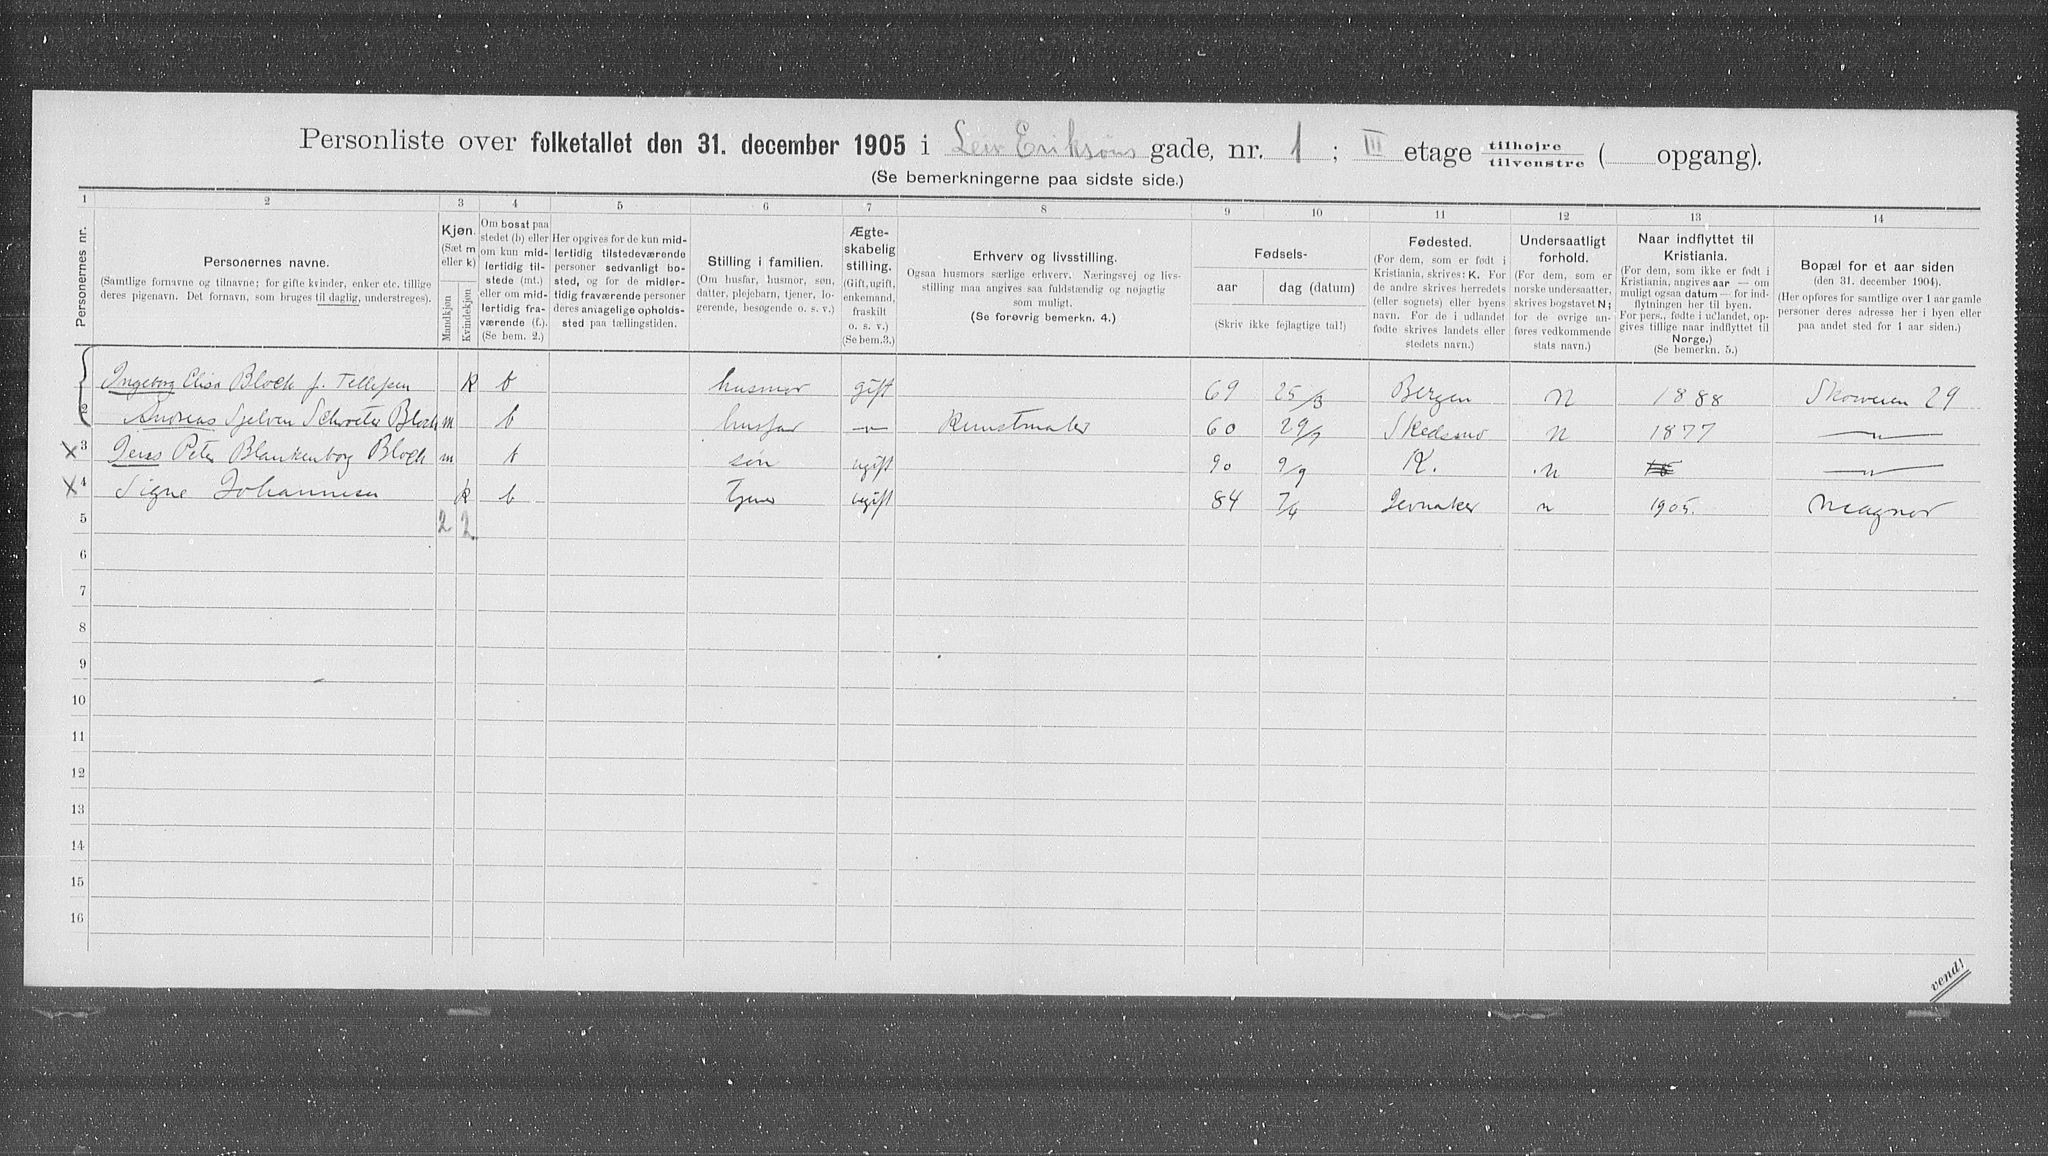 Personliste over folketallet den 31. december 1905 i Leiv Eriksøns gade, nr. 1 ; III etage tilhøjre / tilvenstre ( opgang).
(Se bemerkningerne paa sidste side.)
1 2 3 4 5 6 7 8 9 10 11 12 13 14
Personernes nr.
Personernes navne.
(Samtlige fornavne og tilnavne; for gifte kvinder, enker etc. tillige
deres pigenavn. Det fornavn, som bruges til daglig, understreges).
Kjøn.
(Sæt m
eller k)
Mandkjøn
Kvindekjøn
Om bosat paa
stedet (b) eller
om kun mid-
lertidig til-
stede (mt.)
eller om mid-
lertidig fra-
værende (f.).
(Se bem. 2.)
Her opgives for de kun mid-
lertidig tilstedeværende
personer sedvanligt bo-
sted, og for de midler-
tidig fraværende personer
deres antagelige opholds-
sted paa tællingstiden.
Stilling i familien.
(Om husfar, husmor, søn,
datter, plejebarn, tjener, lo-
gerende, besøgende o. s. v.)
Ægte-
skabelig
stilling.
(Gift, ugift,
enkemand,
fraskilt
o. s. v.)
(Se bem. 3.)
Erhverv og livsstilling.
Ogsaa husmors særlige erhverv. Næringsvej og livs-
stilling maa angives saa fuldstændig og nøjagtig
som muligt.
(Se forøvrig bemerkn. 4.)
Fødsels-
aar dag (datum)
(Skriv ikke fejlagtige tal!)
Fødested.
(For dem, som er født i
Kristiania, skrives: K. For
de andre skrives herredets
(eller sognets) eller byens
navn. For de i udlandet
fødte skrives landets eller
stedets navn.)
Undersaatligt
forhold.
(For dem, som er
norske undersaatter,
skrives bogstavet N;
for de øvrige an-
føres vedkommende
stats navn.)
Naar indflyttet til
Kristiania.
(For dem, som ikke er født i
Kristiania, angives aar — om
muligt ogsaa datum — for ind-
flytningen her til byen.
For pers., fødte i udlandet, op-
gives tillige naar indflyttet til
Norge.)
(Se bemerkn. 5.)
Bopæl for et aar siden
(den 31. december 1904).
(Her opføres for samtlige over 1 aar gamle
personer deres adresse her i byen eller
paa andet sted for 1 aar siden.)
Ingeborg Elisa Block f. Tellefsen k b husmor gift 69 25/3 Bergen N 1888 Skoveien 29
2 Andreas Sjelven Schroeter Block m b husfar — " — Kunstmaler 60 29/9 Skedsmo N 1877 — " —
x 3 Jens Peter Blankenborg Block m b søn ugift 90 9/9 K. N — " —
x 4 Signe Johannesen k b tjener ugift 84 7/4 Jevnaker n 1905. Magnor
5 2 2
6
7
8
9
10
11
12
13
14
15
16
vend!